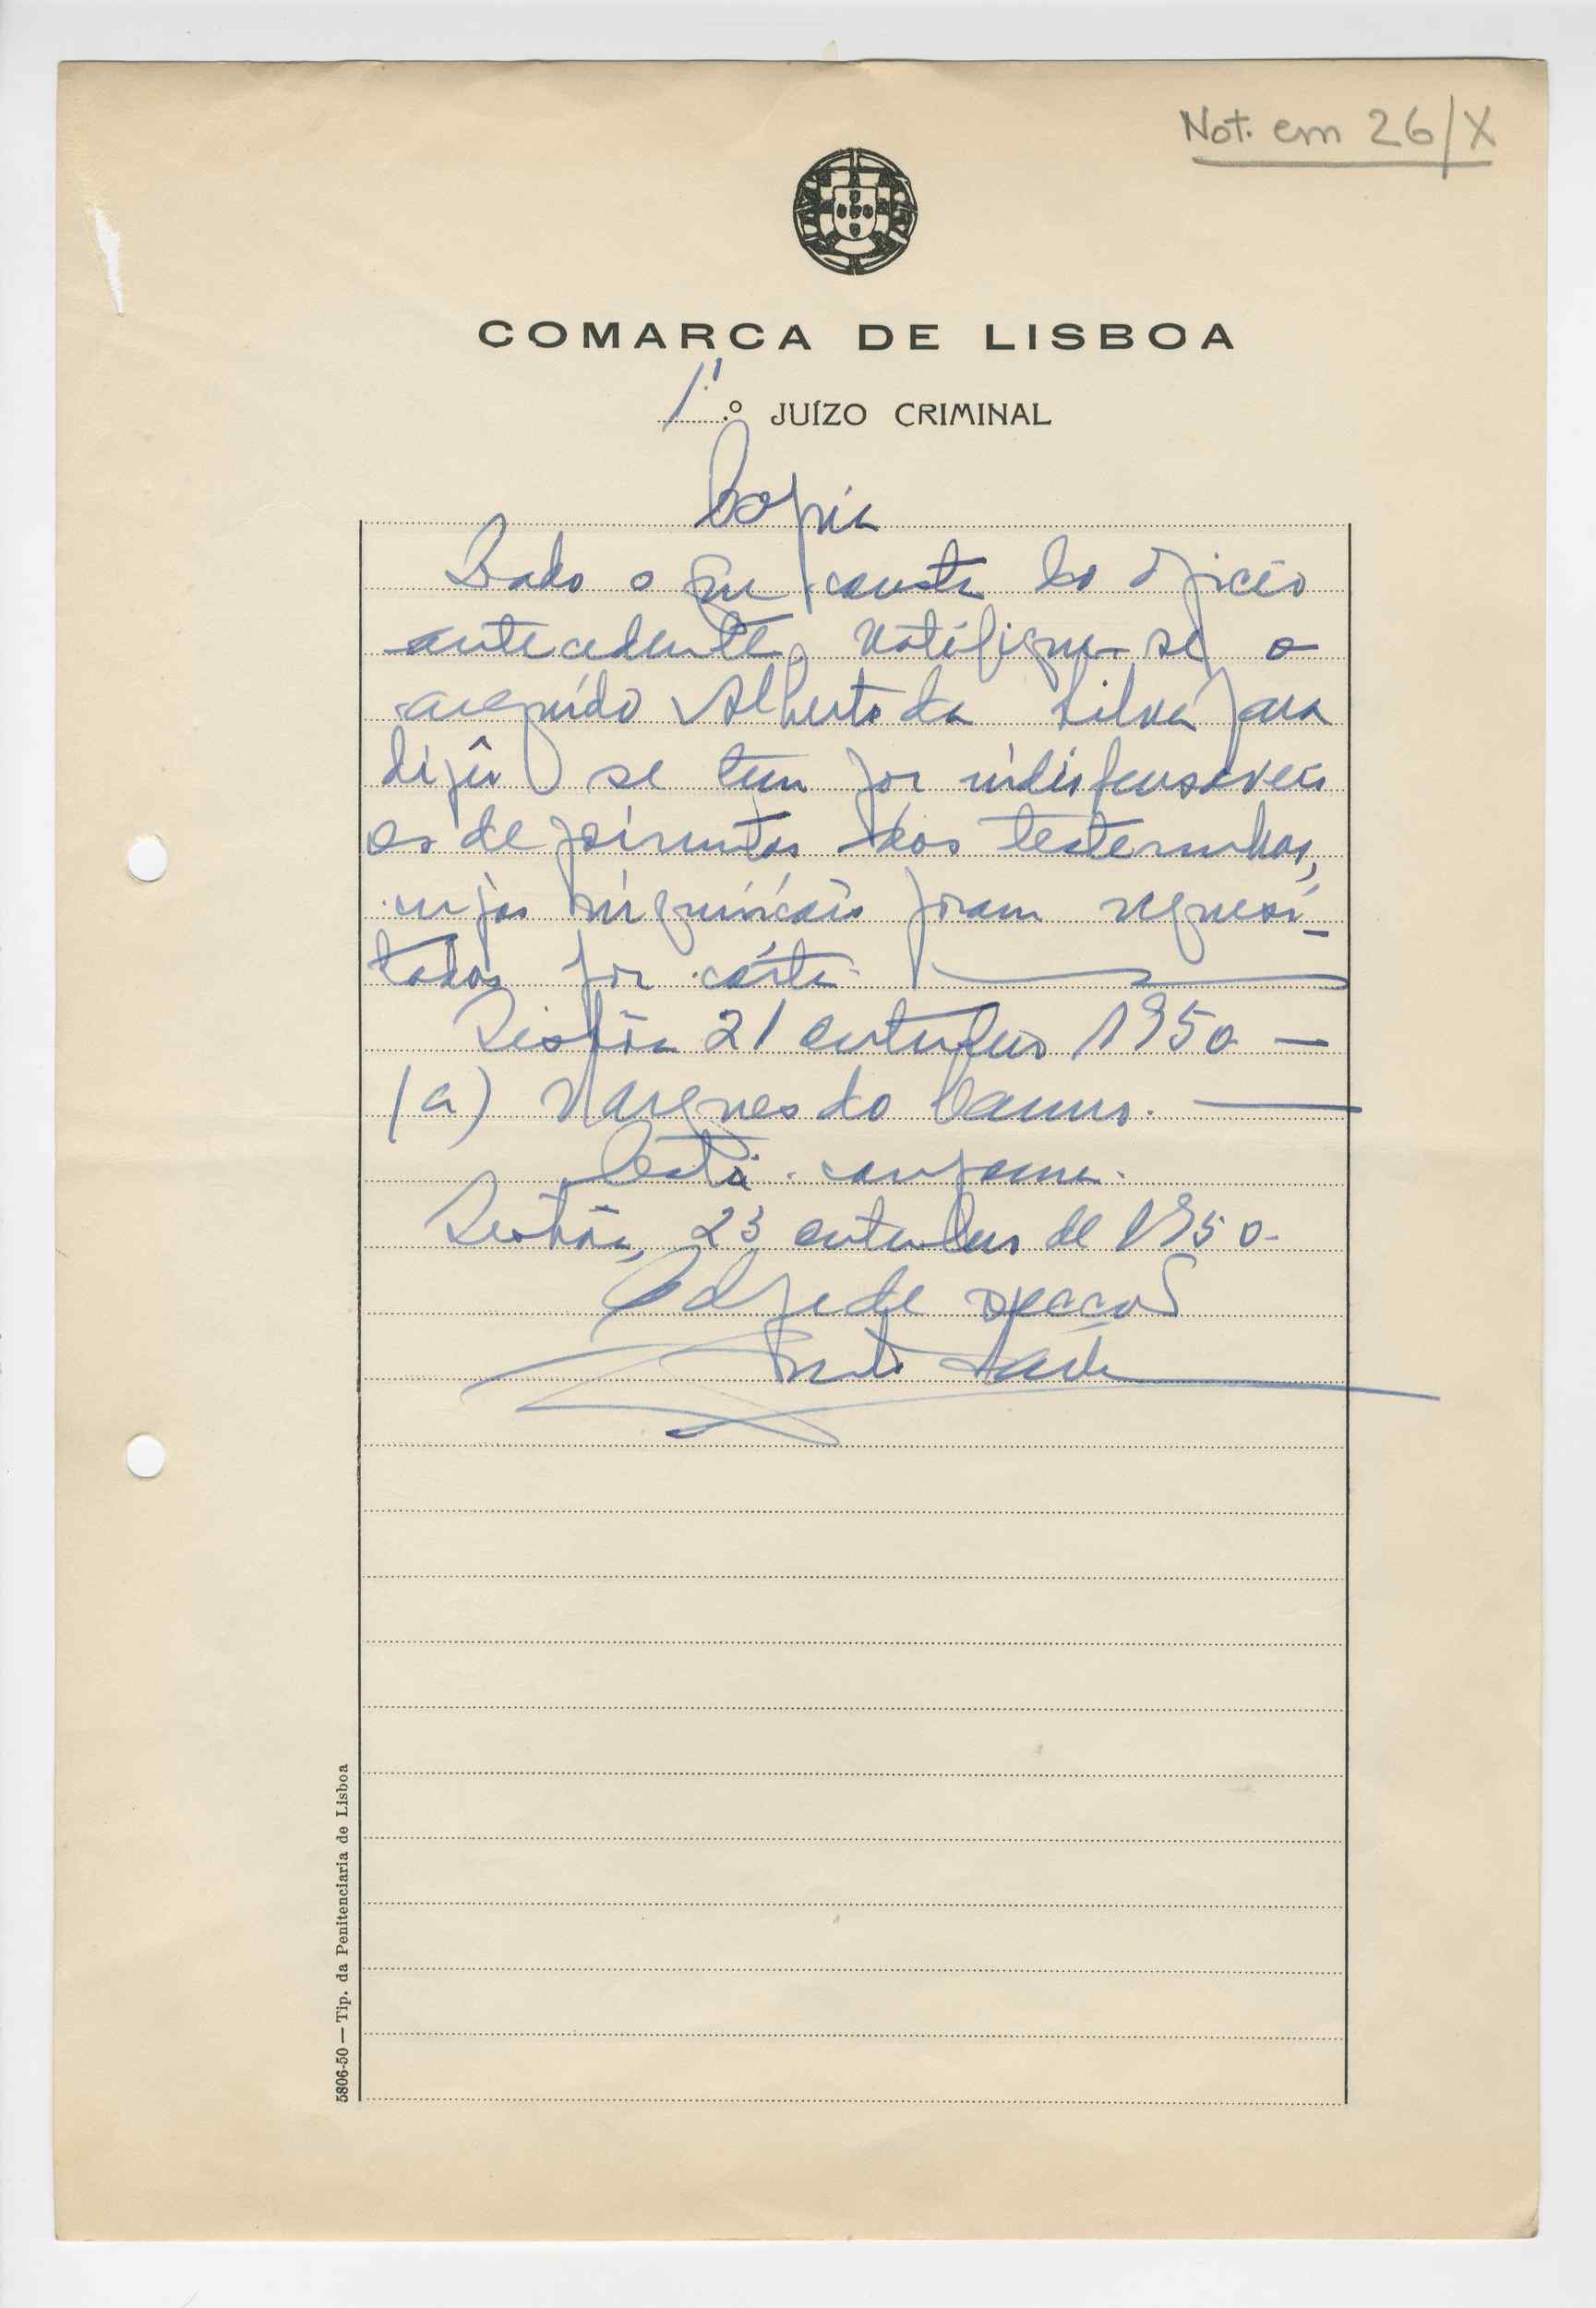 Not. em 26/X
COMARCA DE LISBOA
1.º JUÍZO CRIMINAL
Copia
Dado o que consta do oficio
antecedente, notifique-se o
arguido Alberto da Silva para
dizêr se tem por indispensaveis
os depoimentos das testemunhas,
cujas inquirições foram requesi-
tadas por carta.
Lisbôa 21 outubro 1950 —
(a) Marques do Carmo. —
Está conforme.
Lisbôa, 23 outubro de 1950.
O de secção
5806-50 — Tip. da Penitenciaria de Lisboa